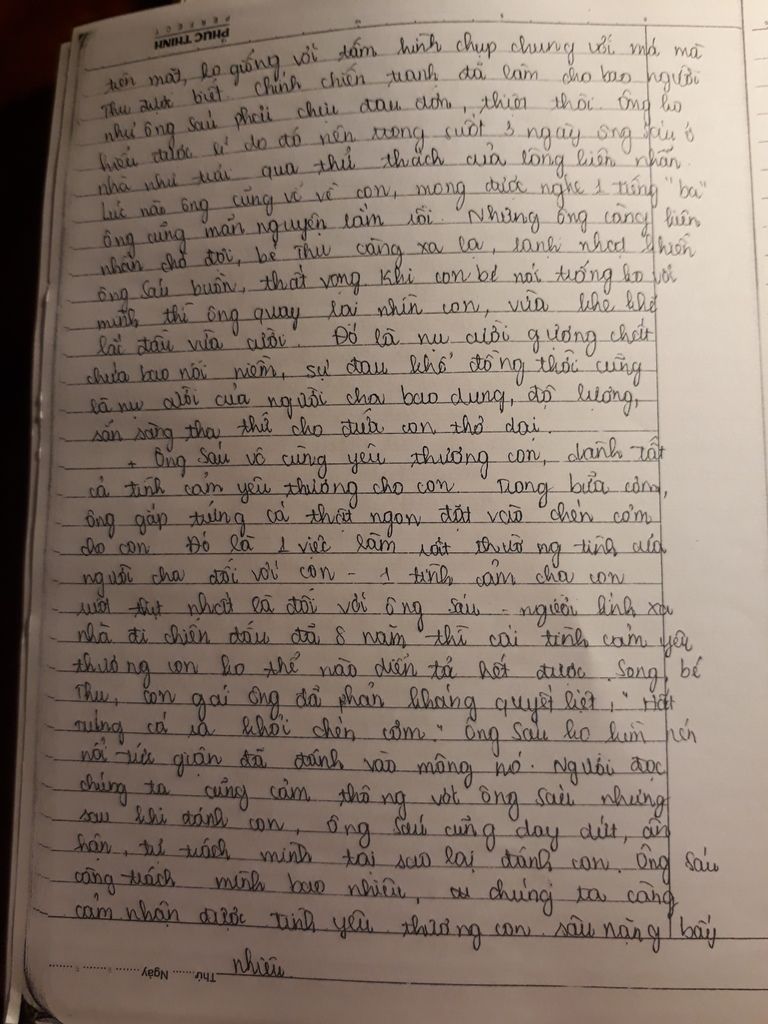 PHÚC THỊNH
PERFECT
trên mặt, ko giống với tấm hình chụp chung với má mà
Thu được biết. Chính chiến tranh đã làm cho bao người
như ông Sáu phải chịu đau đớn, thiệt thòi. Ông ko
hiểu được lí do đó nên trong suốt 3 ngày ông Sáu ở
nhà như trải qua thử thách của lòng kiên nhẫn.
Lúc nào ông cũng vỗ về con, mong được nghe 1 tiếng "ba"
ông cũng mãn nguyện lắm rồi. Nhưng ông càng kiên
nhẫn chờ đợi, bé Thu càng xa lạ, lạnh nhạt khiến
ông Sáu buồn, thất vọng. Khi con bé nói trổng ko với
mình thì ông quay lại nhìn con, vừa khe khẽ
lắc đầu vừa cười. Đó là nụ cười gượng chát
chứa bao nỗi niềm, sự đau khổ đồng thời cũng
là nụ cười của người cha bao dung, độ lượng,
sẵn sàng tha thứ cho đứa con thơ dại.
+ Ông Sáu vô cùng yêu thương con, dành tất
cả tình cảm yêu thương cho con. Trong bữa cơm,
ông gắp trứng cá thật ngon đặt vào chén cơm
cho con. Đó là 1 việc làm rất thường tình của
người cha đối với con - 1 tình cảm cha con
nhất là đối với ông Sáu - người lính xa
nhà đi chiến đấu đã 8 năm thì cái tình cảm yêu
thương con ko thể nào diễn tả hết được. Song, bé
Thu, con gái ông đã phản kháng quyết liệt, "Hất
trứng cá ra khỏi chén cơm." Ông Sáu ko kìm nén
nổi tức giận đã đánh vào mông nó. Người đọc
chúng ta cũng cảm thông với ông Sáu nhưng
sau khi đánh con, ông Sáu cũng day dứt, ân
hận, tự trách mình tại sao lại đánh con. Ông Sáu
càng trách mình bao nhiêu, chúng ta càng
cảm nhận được tình yêu thương con sâu nặng bấy
nhiêu
Thứ ........ Ngày ....................